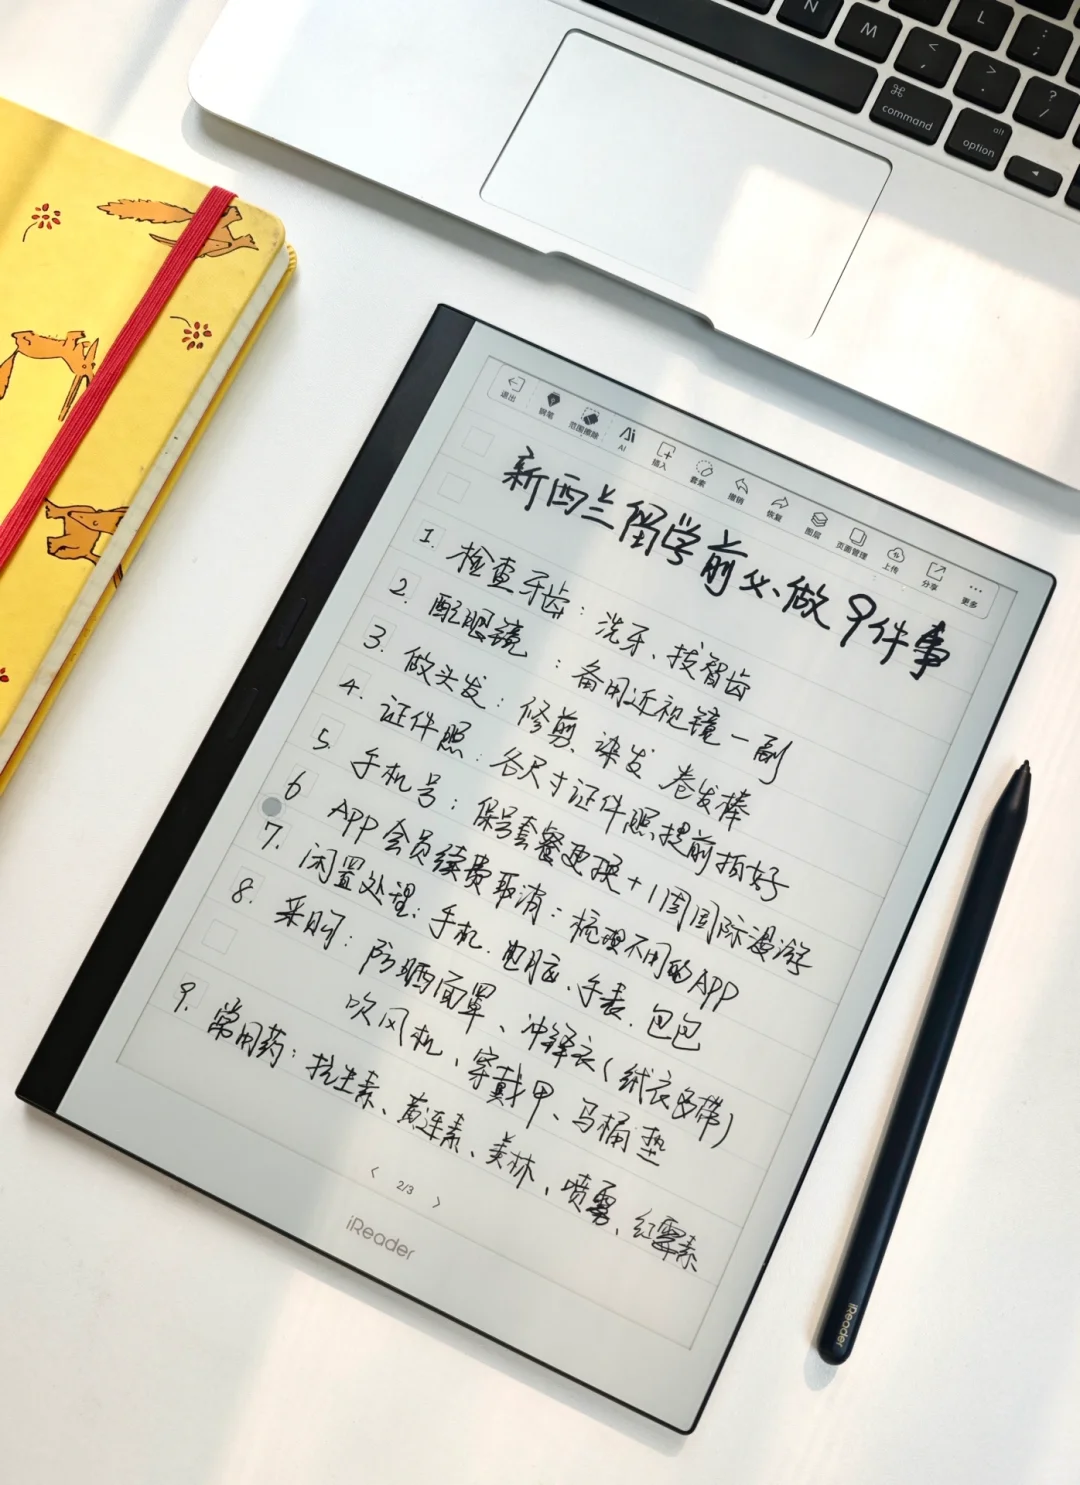 N
M
L
:
;
<
,
>
.
?
/
⌘
command
alt
option
◄
退出
钢笔
范围擦除
AI
AI
插入
套索
撤销
恢复
图层
页面管理
上传
分享
更多
新西兰留学前必做9件事
1. 检查牙齿：洗牙、拔智齿
2. 配眼镜：备用近视镜一副
3. 做头发：修剪、染发 卷发棒
4. 证件照：各尺寸证件照提前拍好
5. 手机号：保号套餐更换+1周国际漫游
6 APP会员续费取消：梳理不用的APP
7. 闲置处理：手机、电脑、手表、包包
8. 采购：防晒面罩、冲锋衣(绒衣多带)
吹风机、穿戴甲、马桶垫
9. 常用药：抗生素、黄连素、美林、喷雾、红霉素
< 2/3 >
iReader
iReader